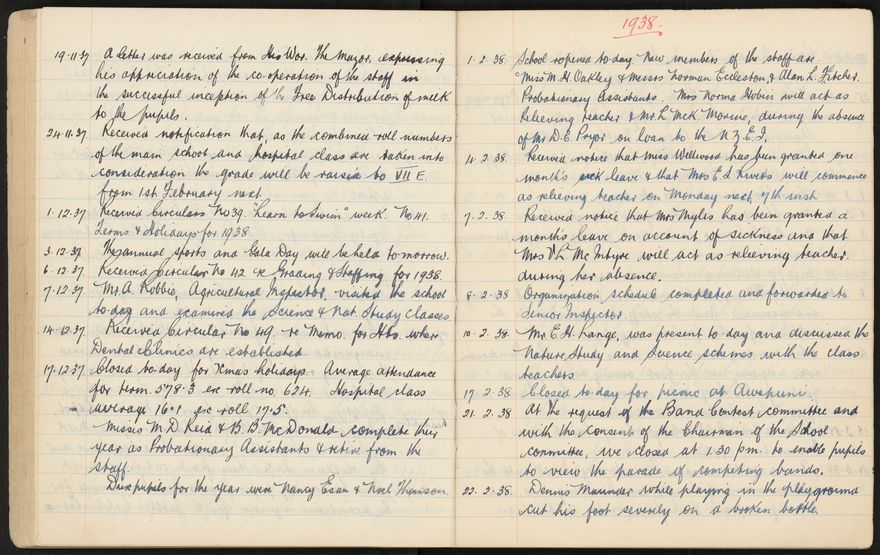 19.11.37 A letter was received from His Wor. The Mayor, expressing
his appreciation of the co-operation of the staff in
the successful inception of the Free Distribution of milk
to the pupils.
24.11.37. Received notification that, as the combined roll numbers
of the main school and hospital class are taken into
consideration the grade will be raised to VII E.
from 1st February next.
1.12.37. Received Circulars No 39. "Learn to Swim" week. No 41.
Terms & Holidays for 1938
3.12.37. The annual sports and Gala Day will be held to-morrow.
6.12.37. Received Circular No 42 re Grading & Staffing for 1938.
7.12.37. Mr. A. Robbie, Agricultural Inspector, visited the school
to-day and examined the Science & Nat. Study classes.
14.12.37. Received Circular No 49. re Memo. for Hts. where
Dental Clinics are established.
17.12.37. Closed to-day for Xmas holidays. Average attendance
for term 578.3 exc roll no. 624. Hospital class
average 16.1 exc roll 17.5.
Misses M. D. Reid & B. B. McDonald complete their
year as Probationary Assistants & retire from the
Staff.
Dux pupils for the year were Nancy Esau & Noel Thomson.
1938.
1.2.38. School reopened to-day. New members of the staff are
Miss M. H. Oakley & Messrs Norman Eccleston, & Alan L. Fitcher.
Probationary Assistants. Mrs Norma Hobin will act as
Relieving teacher & Mr. L. McK. Morine, during the absence
of Mr D. C. Pryor on loan to the N.Z.E.I.
4.2.38. Received notice that Miss Wellwood has been granted one
month's sick leave & that Mrs E. A. Rivers will commence
as relieving teacher on Monday next, 7th inst.
7.2.38. Received notice that Mrs Myles has been granted a
months leave on account of sickness and that
Mrs V. L. McIntyre will act as relieving teacher
during her absence.
8.2.38 Organization schedule completed and forwarded to
Senior Inspector.
10.2.38. Mr. E. H. Lange, was present to-day and discussed the
Nature Study and Science schemes with the class
teachers.
17.2.38 Closed to-day for picnic at Awapuni.
21.2.38 At the request of the Band Contest committee and
with the consent of the Chairman of the School
committee, we closed at 1.30 p.m. to enable pupils
to view the parade of competing bands.
22.2.38. Dennis Maunder while playing in the playground
cut his foot severely on a broken bottle.